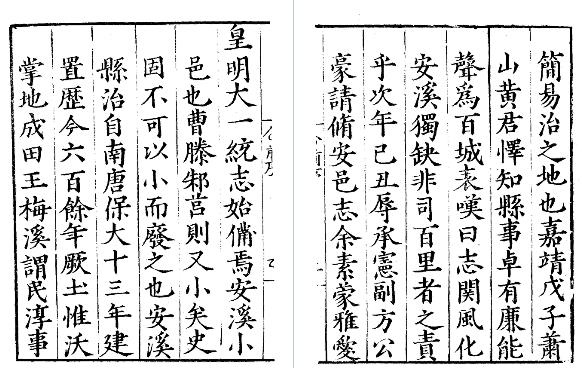 簡易治之地也嘉靖戊子蕭
山黄君懌知縣事卓有廉能
聲為百城表嘆曰志關風化
安溪獨缺非司百里者之責
乎次年己丑辱承憲副方公
豪請脩安邑志余素蒙雅愛
皇明大一統志始備焉安溪小
邑也曹滕邾莒則又小矣史
固不可以小而廢之也安溪
縣治自南唐保大十三年建
置歷今六百餘年厥土惟沃
掌地成田王梅溪謂民淳事